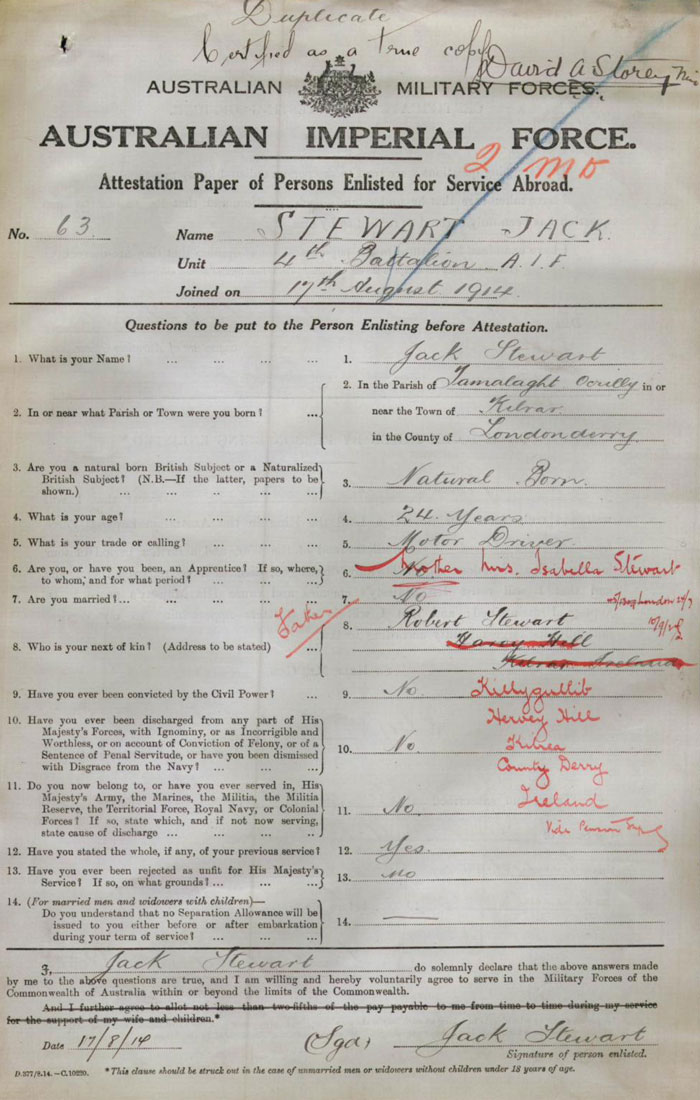 Duplicate
Certified as a true copy
David A Storey
AUSTRALIAN MILITARY FORCES.
AUSTRALIAN IMPERIAL FORCE.
2
Attestation Paper of Persons Enlisted for Service Abroad.
No. 63 Name STEWART JACK
Unit 4th Battalion A.I.F.
Joined on 17th August 1914
Questions to be put to the Person Enlisting before Attestation.
1. What is your Name? ... ... ... ... 1. Jack Stewart
2. In or near what Parish or Town were you born? ... 2. In the Parish of Tamalaght Ocrilly in or
near the Town of Kilrar
in the County of Londonderry
3. Are you a natural born British Subject or a Naturalized
British Subject? (N.B.—If the latter, papers to be
shown.) ... ... .. ... ... 3. Natural Born
4. What is your age? ... ... ... ... 4. 24 Years
5. What is your trade or calling? ... ... ... 5. Motor Driver
6. Are you, or have you been, an Apprentice? If so, where,
to whom, and for what period? ... ... ... 6. No
Mother Mrs. Isabella Stewart
7. Are you married?... ... ... ... ... 7. No
8. Who is your next of kin? (Address to be stated) ... 8. Robert Stewart
Father
Hill
Kilrar Ireland
9. Have you ever been convicted by the Civil Power? ... 9. No.
Killygullib
Hervey Hill
Kilrea
County Derry
Ireland
10. Have you ever been discharged from any part of His
Majesty's Forces, with Ignominy, or as Incorrigible and
Worthless, or on account of Conviction of Felony, or of a
Sentence of Penal Servitude, or have you been dismissed
with Disgrace from the Navy? ... ... ... 10. No
11. Do you now belong to, or have you ever served in, His
Majesty's Army, the Marines, the Militia, the Militia
Reserve, the Territorial Force, Royal Navy, or Colonial
Forces? If so, state which, and if not now serving,
state cause of discharge ... ... ... .. 11. No.
12. Have you stated the whole, if any, of your previous service? 12. Yes.
13. Have you ever been rejected as unfit for His Majesty's
Service? If so, on what grounds? ... ... ... 13. No
14. (For married men and widowers with children)—
Do you understand that no Separation Allowance will be
issued to you either before or after embarkation
during your term of service? ... ... ... 14. —
I, Jack Stewart do solemnly declare that the above answers made
by me to the above questions are true, and I am willing and hereby voluntarily agree to serve in the Military Forces of the
Commonwealth of Australia within or beyond the limits of the Commonwealth.
And I further agree to allot not less than two-fifths of the pay payable to me from time to time during my service
for the support of my wife and children.*
Date 17/8/14 (Sgd) Jack Stewart
Signature of person enlisted.
D.377/8.14.—C.10220. *This clause should be struck out in the case of unmarried men or widowers without children under 18 years of age.